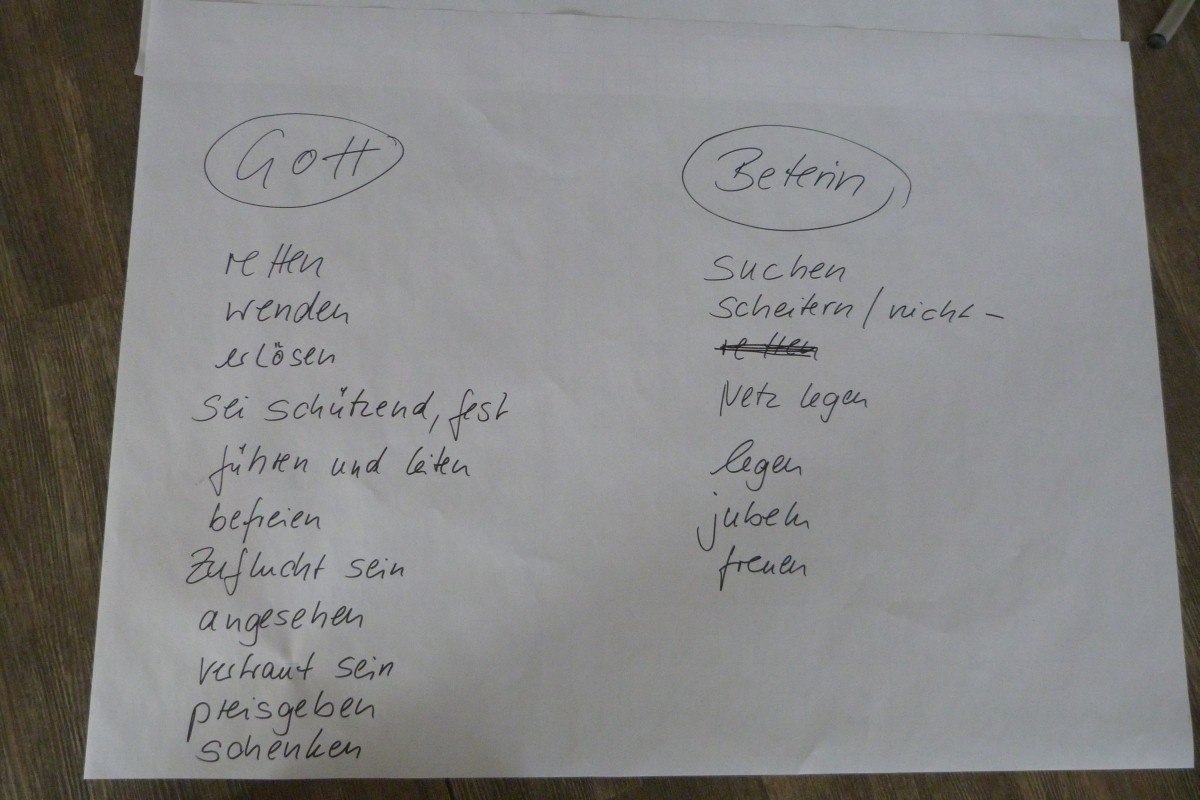 Gott
retten
wenden
erlösen
sei schützend, fest
führen und leiten
befreien
Zuflucht sein
angesehen
vertraut sein
preisgeben
schenken
Beterin
suchen
scheitern / nicht -
retten
Netz legen
legen
jubeln
freuen